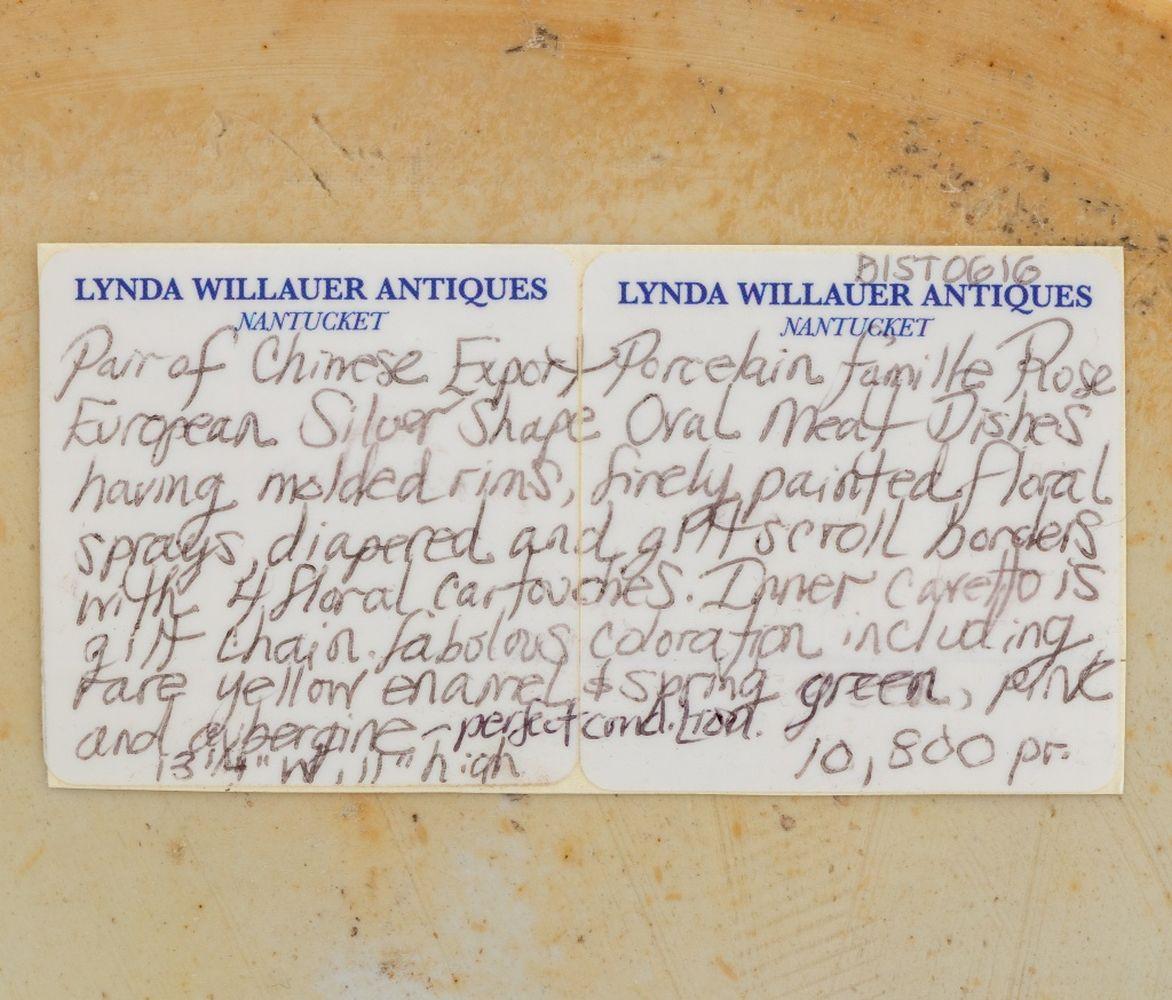 BIST0616
LYNDA WILLAUER ANTIQUES LYNDA WILLAUER ANTIQUES
NANTUCKET NANTUCKET
Pair of Chinese Export Porcelain famille Rose
European Silver Shape Oval Meat Dishes
having molded rims, finely painted floral
sprays, diapered and gilt scroll borders
with 4 floral cartouches. Inner cavetto is
gilt chain. fabolous coloration including
rare yellow enamel & spring green, pink
and aubergine - perfect condition.
13 1/4" W, 11" high 10,800 pr.